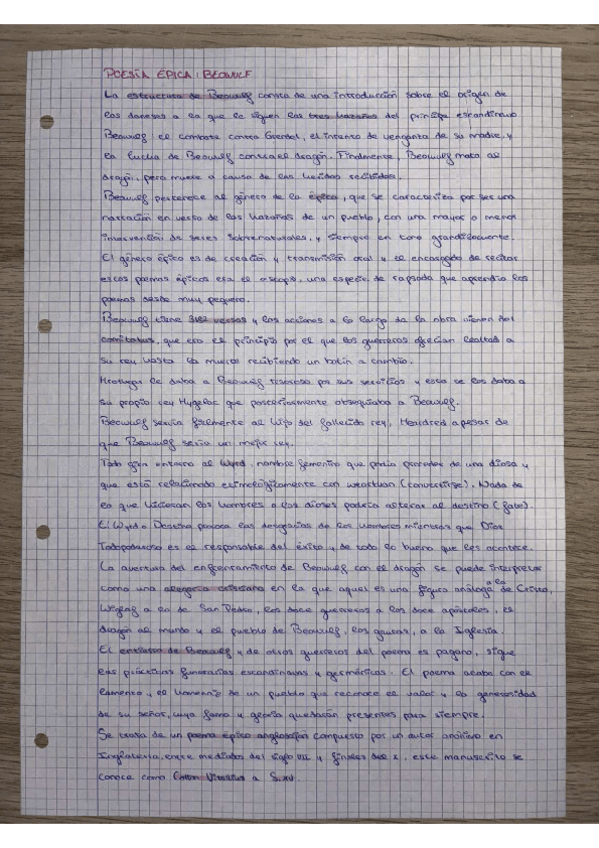 POESÍA ÉPICA: BEOWULF
La estructura de Beowulf consta de una introducción sobre el origen de
los daneses a la que le siguen las tres hazañas del príncipe escandinavo
Beowulf: el combate contra Grendel, el intento de venganza de su madre y
la lucha de Beowulf contra el dragón. Finalmente, Beowulf mata al
dragón, pero muere a causa de las heridas recibidas.
Beowulf pertenece al género de la épica, que se caracteriza por ser una
narración en verso de las hazañas de un pueblo, con una mayor o menor
intervención de seres sobrenaturales, y siempre en tono grandilocuente.
El género épico es de creación y transmisión oral y el encargado de recitar
estos poemas épicos era el escopio, una especie de rapsoda que aprendía los
poemas desde muy pequeño.
Beowulf tiene 3182 versos y las acciones a lo largo de la obra vienen del
comitatus, que era el principio por el que los guerreros ofrecían lealtad a
su rey hasta la muerte recibiendo un botín a cambio.
Hrothgar le daba a Beowulf tesoros por sus servicios y este se los daba a
su propio rey Hygelac que posteriormente obsequiaba a Beowulf.
Beowulf servía fielmente al hijo del fallecido rey, Heardred a pesar de
que Beowulf sería un mejor rey.
Todo gira entorno al Wyrd, nombre femenino que podía proceder de una diosa y
que está relacionado etimológicamente con weorthan (convertirse). Nada de
lo que hicieran los hombres o los dioses podría alterar al destino (fate).
El Wyrd o Destino provoca las desgracias de los hombres mientras que Dios
Todopoderoso es el responsable del éxito y de todo lo bueno que les acontece.
La aventura del enfrentamiento de Beowulf con el dragón se puede interpretar
como una alegoría cristiana en la que aquel es una figura análoga a la de Cristo,
Wiglaf a la de San Pedro, los doce guerreros a los doce apóstoles, el
dragón al mundo y el pueblo de Beowulf, los gautas, a la Iglesia.
El entierro de Beowulf y de otros guerreros del poema es pagano, sigue
las prácticas funerarias escandinavas y germánicas. El poema acaba con el
lamento y el homenaje de un pueblo que reconoce el valor y la generosidad
de su señor, cuya fama y gloria quedarán presentes para siempre.
Se trata de un poema épico anglosajón compuesto por un autor anónimo en
Inglaterra, entre mediados del siglo VII y finales del X, este manuscrito se
conoce como Cotton Vitellius A S.XV.